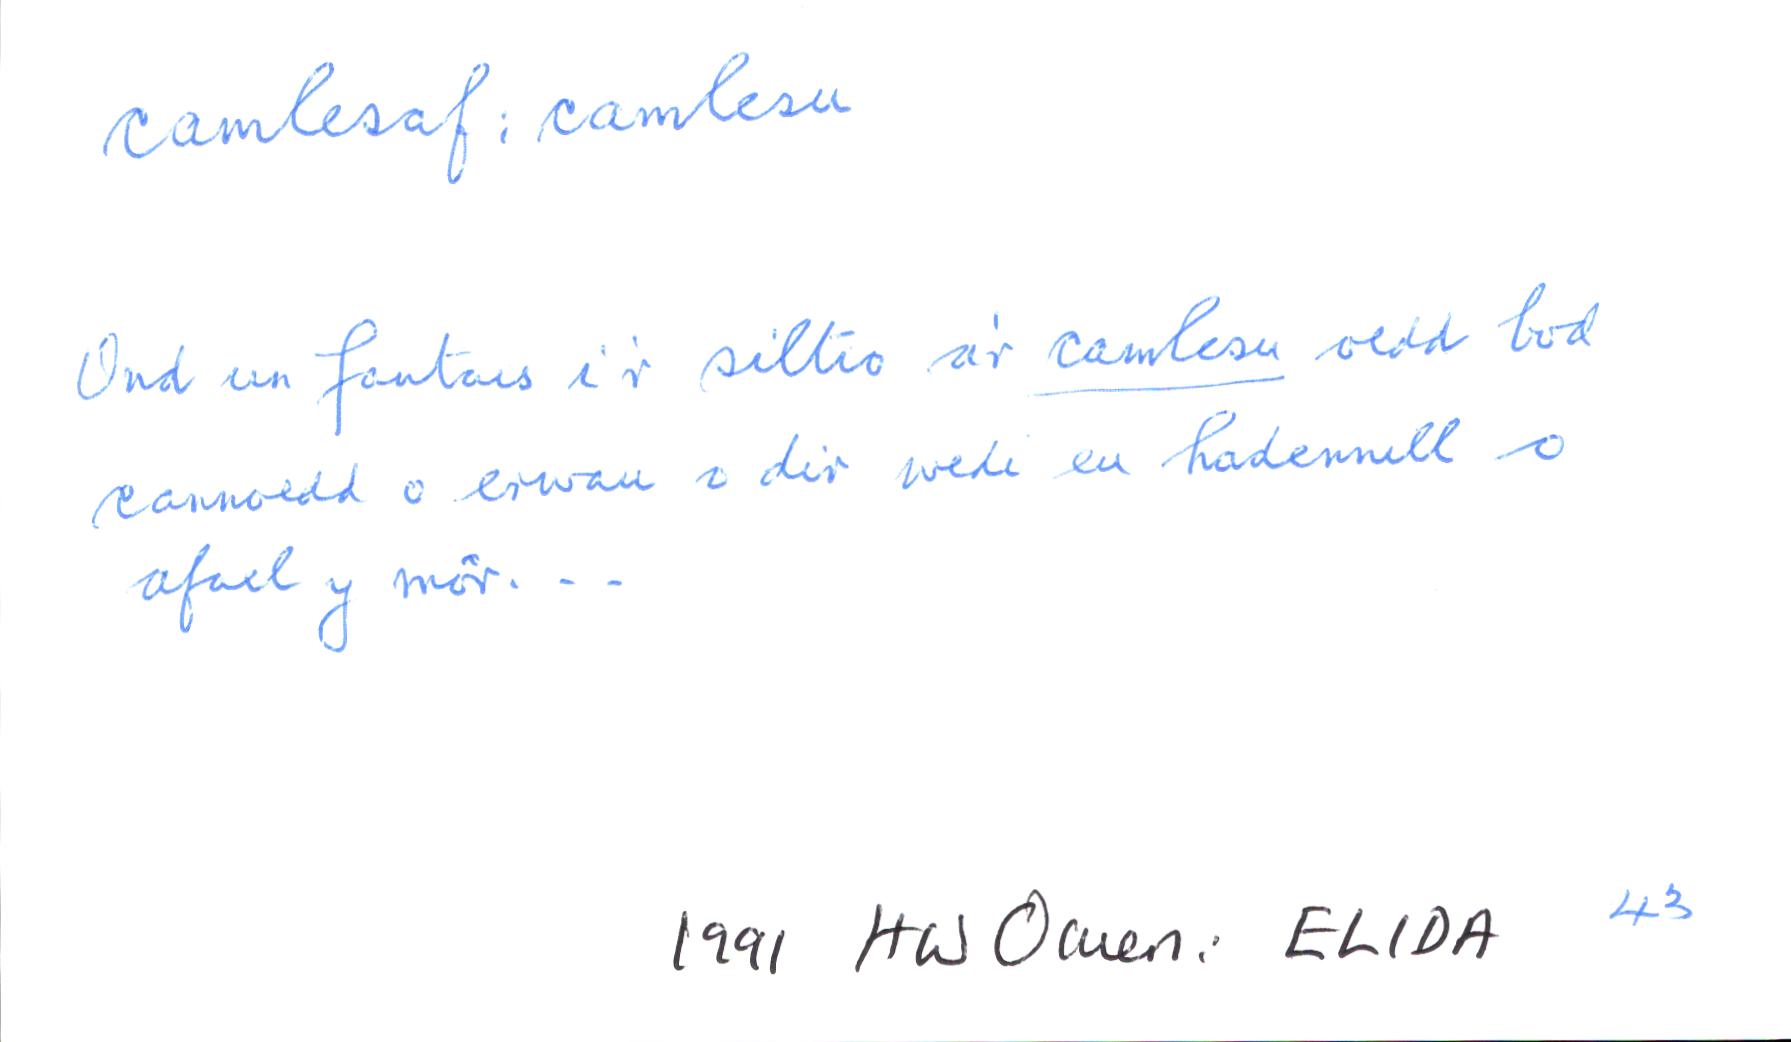 camlesaf: camlesu
Ond un fantais i'r siltio a'r camlesu oedd bod
cannoedd o erwau o dir wedi eu hadennill o
afael y môr. - -
1991 HW Owen: ELIDA 43